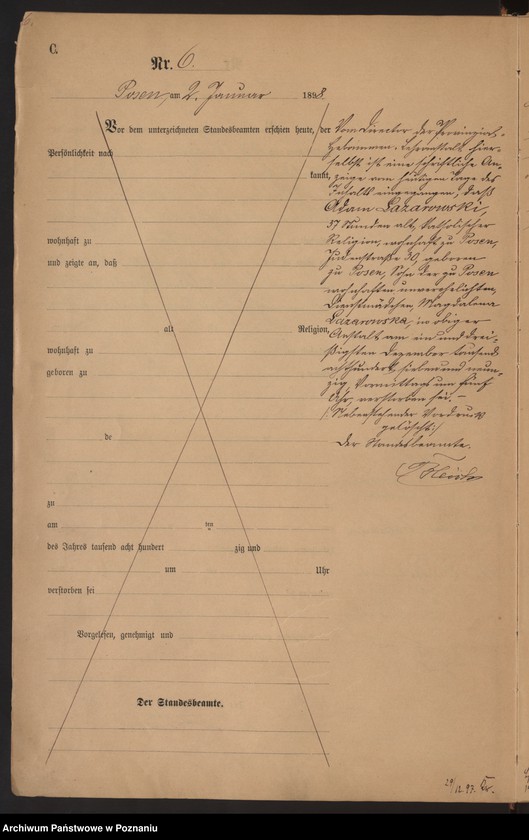 C.
Nr. 6.
Posen, am 2. Januar 1898.
Vor dem unterzeichneten Standesbeamten erschien heute, der
Persönlichkeit nach
kannt,
wohnhaft zu
und zeigte an, daß
alt Religion,
wohnhaft zu
geboren zu
de
zu
am ten
des Jahres tausend acht hundert zig und
um Uhr
verstorben sei
Vorgelesen, genehmigt und
Der Standesbeamte.
Vom Director der Provinzial-
Hebammen-Lehranstalt hier-
selbst ist eine schriftliche An-
zeige vom heutigen Tage des
Inhalts eingegangen, daß
Adam Lazarowski,
57 Stunden alt, katholischer
Religion, wohnhaft zu Posen,
Judenstraße 30, geboren
zu Posen, Sohn der zu Posen
wohnhaften unverehelichten
Dienstmädchen Magdalena
Lazarowska, in obiger
Anstalt am ein und drei-
ßigsten Dezember tausend
achthundert sieben und neun-
zig, Vormittags um fünf
Uhr, verstorben sei. -
/: Nebenstehender Vordruck
gelöscht :/
Der Standesbeamte.
29/12.97.
Archiwum Państwowe w Poznaniu